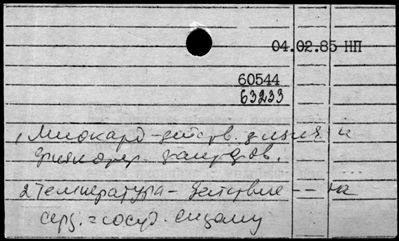 04.02.85 НП
60544
63233
1. Миокард - действ. физич. и
фармакол.
2. Температура - действие -- на
серд.=сосуд. систему